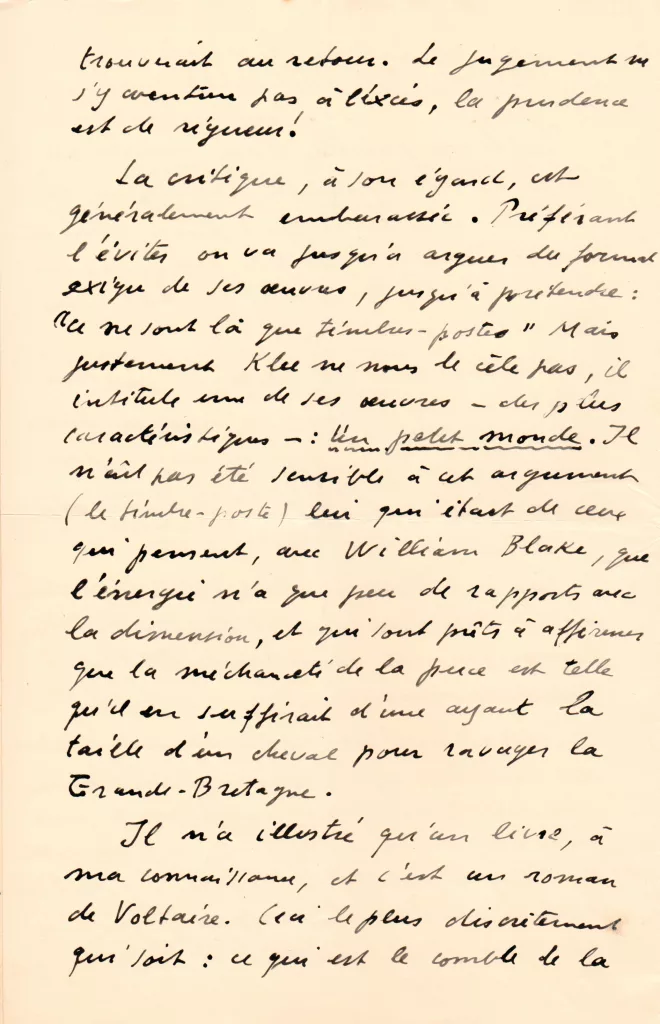 trouverait au retour. Le jugement ne
s'y aventure pas à l'excès, la prudence
est de rigueur!
La critique, à son égard, est
généralement embarassée. Préférant
l'éviter on va jusqu'à arguer du format
exigu de ses œuvres, jusqu'à prétendre :
"ce ne sont là que timbres-postes" Mais
justement Klee ne nous le cèle pas, il
intitule une de ses œuvres – des plus
caractéristiques – : Un petit monde. Il
n'eût pas été sensible à cet argument
(le timbre-poste) lui qui était de ceux
qui pensent, avec William Blake, que
l'énergie n'a que peu de rapports avec
la dimension, et qui sont prêts à affirmer
que la méchanceté de la puce est telle
qu'il en suffirait d'une ayant la
taille d'un cheval pour ravager la
Grande-Bretagne.
Il n'a illustré qu'un livre, à
ma connaissance, et c'est un roman
de Voltaire. Ceci le plus discrètement
qui soit : ce qui est le comble de la